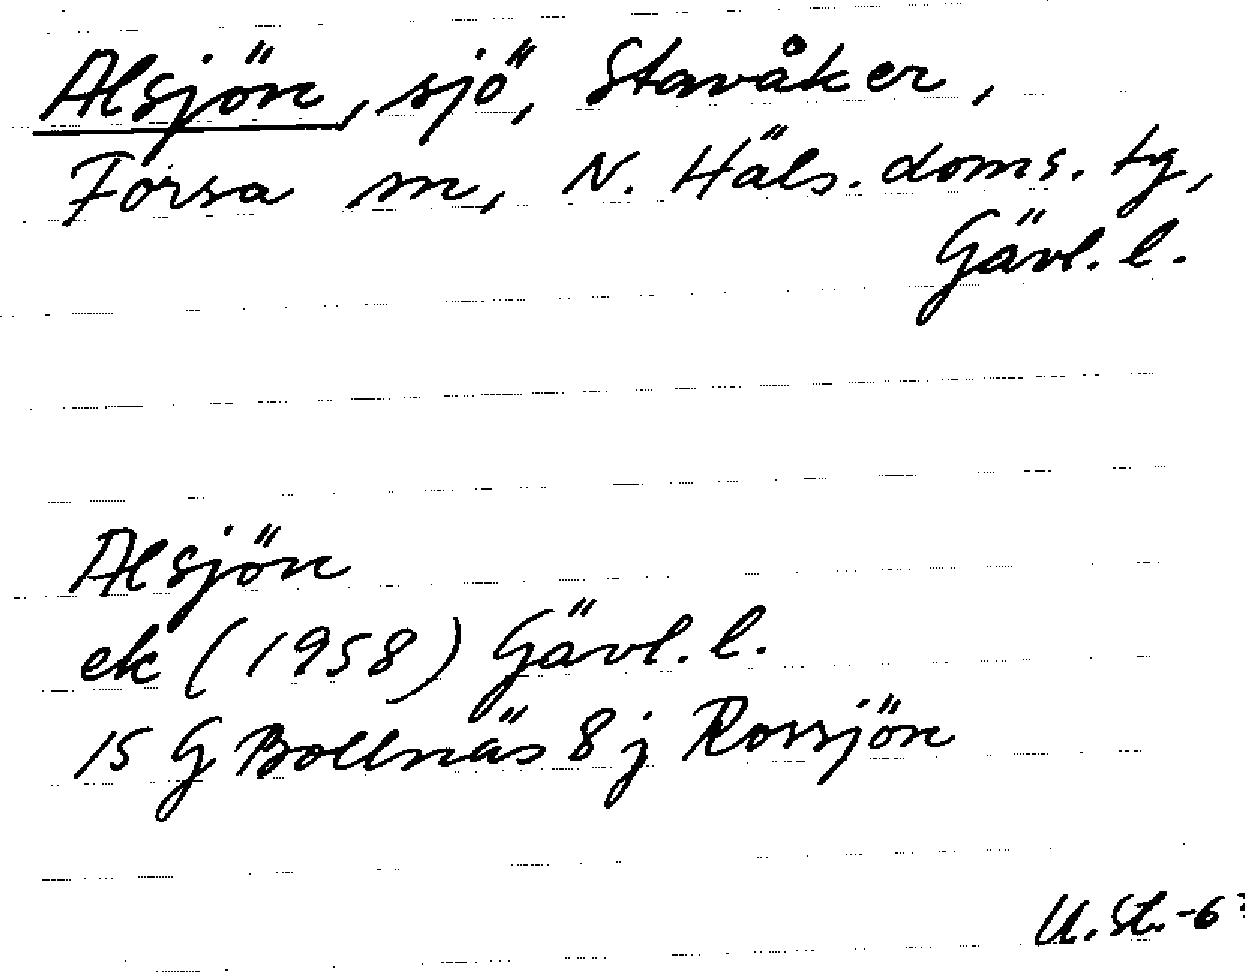 Alsjön, sjö, Stavåker,
Forsa sn, N. Häls. doms. tg,
Gävl. l.
Alsjön
ek (1958) Gävl. l.
15 G Bollnäs 8 j Rossjön
U. St. -6